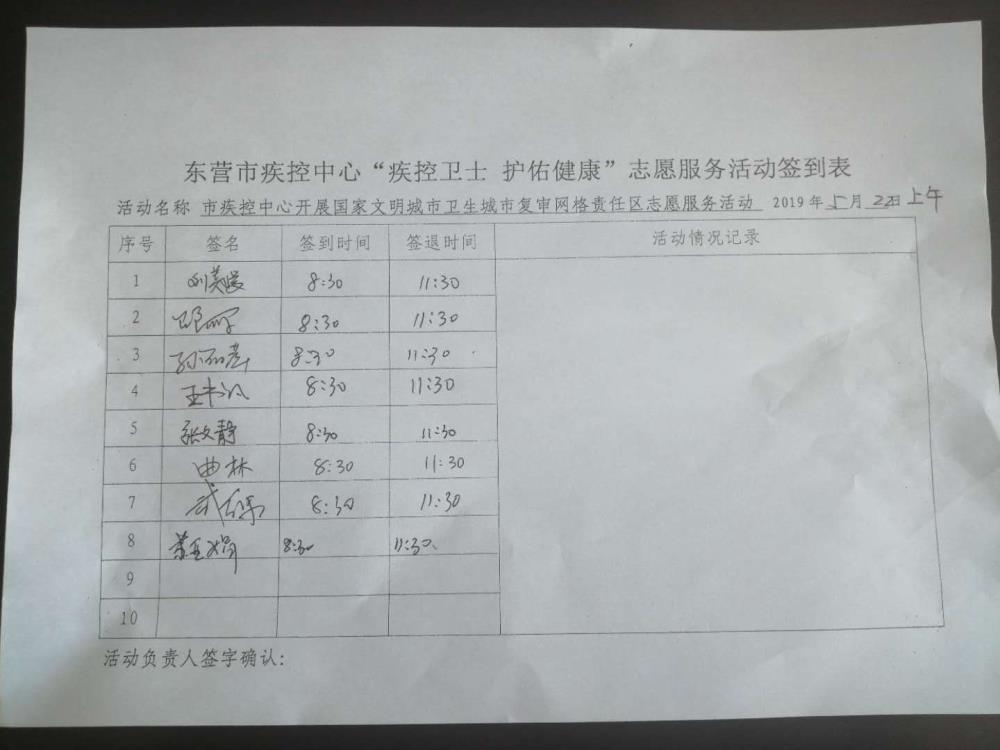 东营市疾控中心“疾控卫士 护佑健康”志愿服务活动签到表
活动名称 市疾控中心开展国家文明城市卫生城市复审网格责任区志愿服务活动 2019年5月22日上午
序号 签名 签到时间 签退时间 活动情况记录
1 8:30 11:30
2 8:30 11:30
3 8:30 11:30
4 8:30 11:30
5 张文静 8:30 11:30
6 曲林 8:30 11:30
7 8:30 11:30
8 8:30 11:30
9
10
活动负责人签字确认: